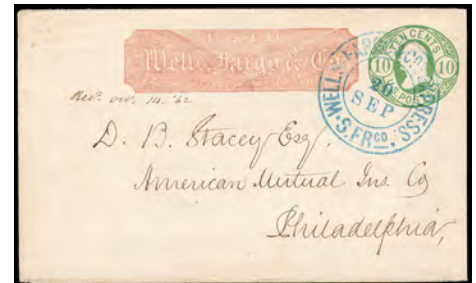 PAID
Wells, Fargo & Co
TEN CENTS
10 10
U.S. POSTAGE
WELLS, FARGO & Co. EXPRESS
20
SEP
S. FRCO.
Rec. Oct. 14. '62
D. B. Stacey Esq.
American Mutual Ins. Co
Philadelphia,